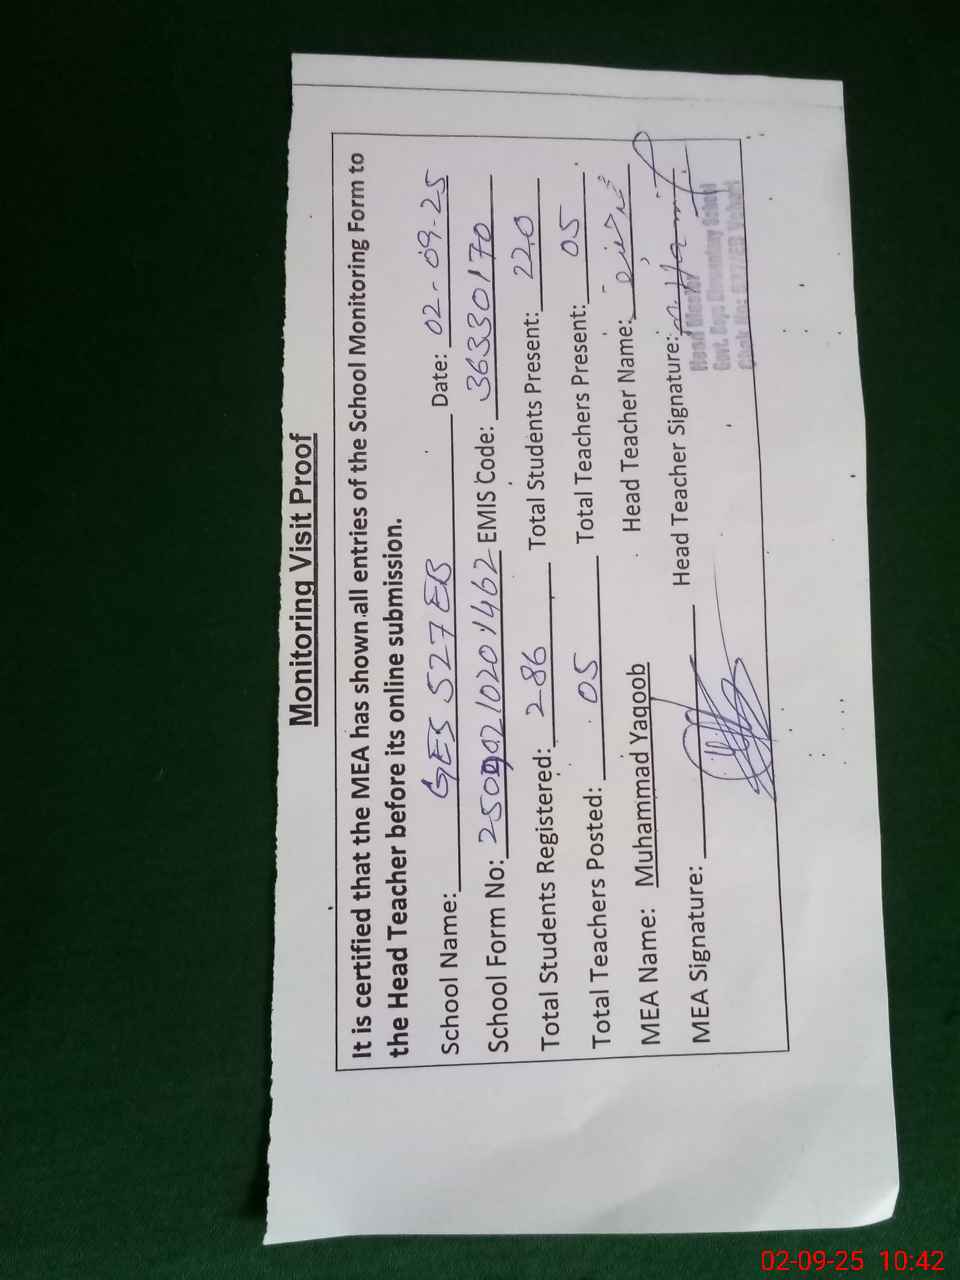 Monitoring Visit Proof
It is certified that the MEA has shown all entries of the School Monitoring Form to
the Head Teacher before its online submission.
School Name: GES 527 EB Date: 02-09-25
School Form No: 25090210201462 EMIS Code: 36330170
Total Students Registered: 286 Total Students Present: 220
Total Teachers Posted: 05 Total Teachers Present: 05
MEA Name: Muhammad Yaqoob Head Teacher Name:
MEA Signature: Head Teacher Signature:
Head Master
Govt. Boys Elementary School
Chak No: 527/EB Vehari
02-09-25 10:42